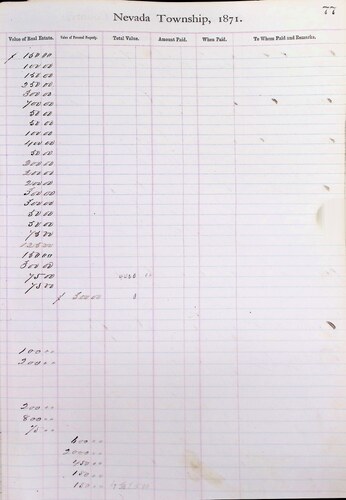 77
Nevada Township, 1871.
Value of Real Estate. Value of Personal Property. Total Value. Amount Paid. When Paid. To Whom Paid and Remarks.
$ 150 00
100 00
150 00
250 00
300 00
700 00
50 00
50 00
100 00
400 00
50 00
200 00
200 00
200 00
300 00
300 00
50 00
50 00
75 00
125 00
150 00
300 00
75 00
75 00
$ 200 00
100 00
200 00
200 00
800 00
75 00
400 00
2000 00
450 00
150 00
150 00